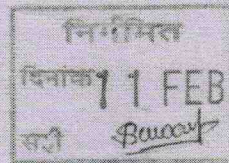 निर्गमित
दिनांक 11 FEB
सही